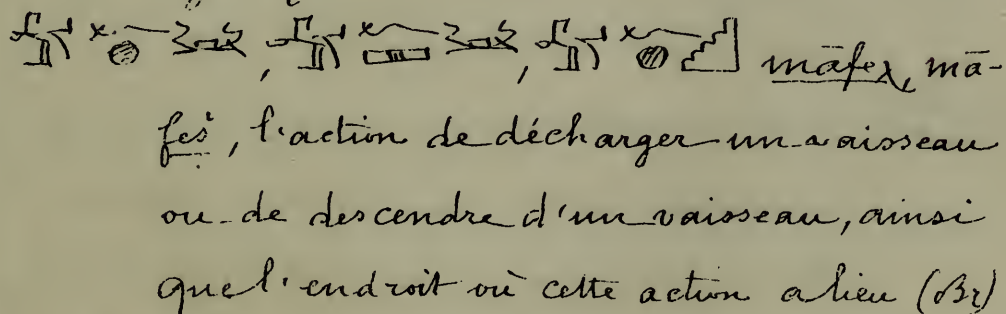 māfeχ, mā-
feš, l'action de décharger un vaisseau
ou de descendre d'un vaisseau, ainsi
que l'endroit où cette action a lieu (Br)